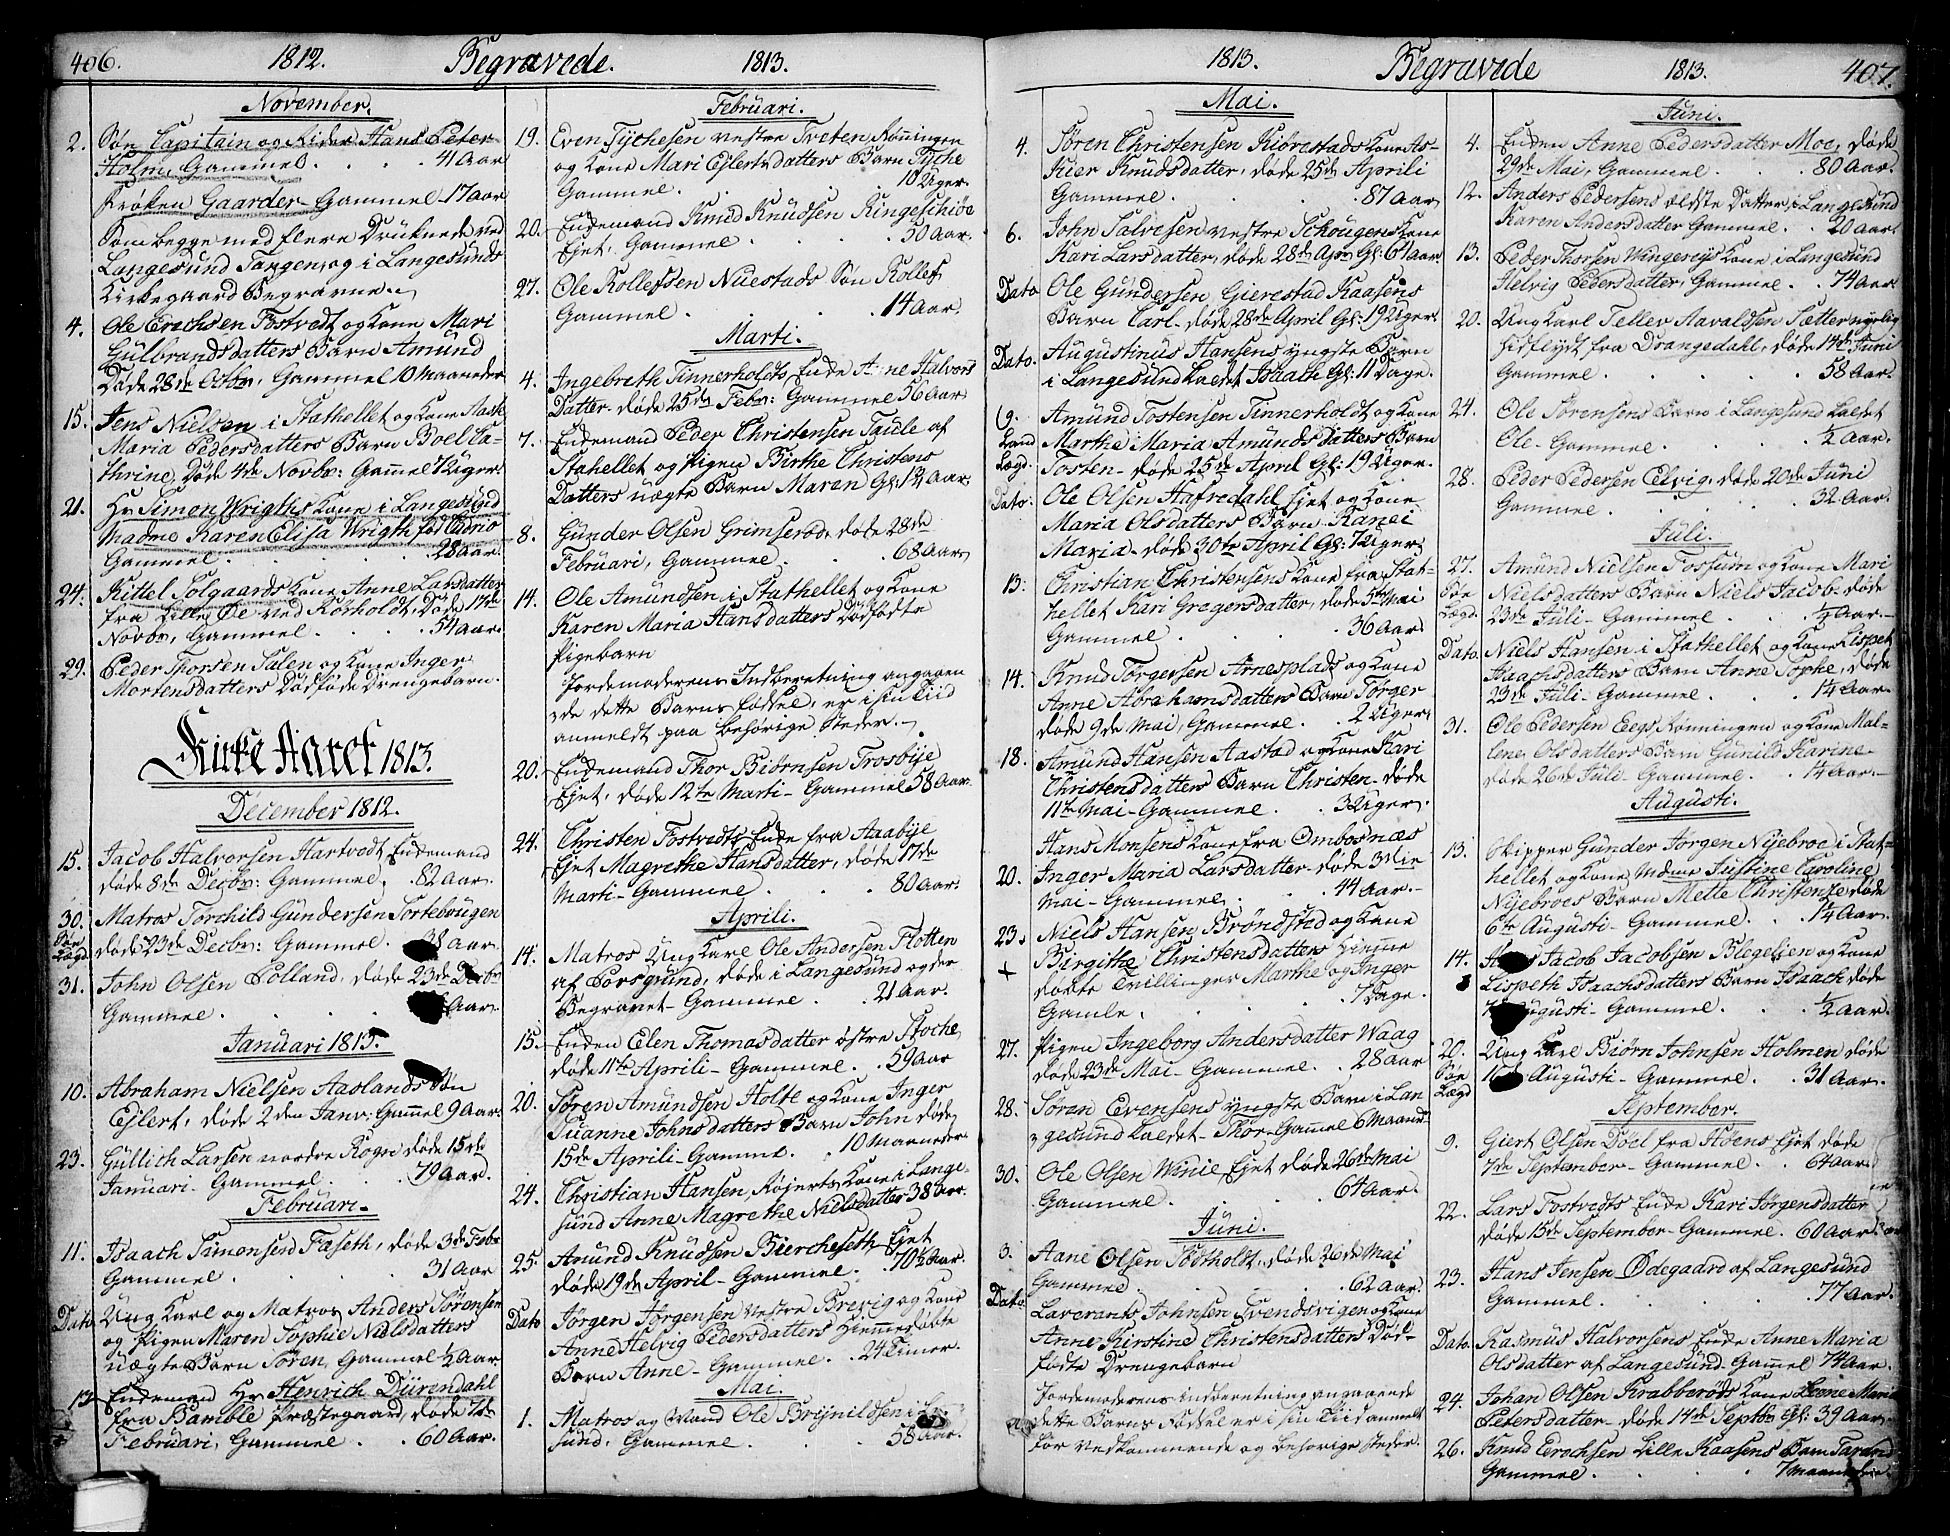 406. 1812. Begravede. 1813.
November.
2. Søn Capitain og Rider Hans Peter
Holm, Gammel . . 41 Aar
Frøken Gaarder - Gammel 17 Aar
Som begge med flere Druknede ved
Langesund Tangen, og i Langesunds
Kirkegaard Begravne.
4. Ole Erichsen Tostvedt og Kone Mari
Gulbrandsdatters Barn Amund
Døde 28de Octbr, Gammel 10 Maaneder
15. Jens Nielsen i Stathellet og Kone Aase
Maria Pedersdatters Barn Boel Ca-
thrine, Døde 4de Novbr: Gammel Uger.
21. Hr Simon Wrigths Kone i Langesund
Madme Karen Elisa Wrigth fød
Gammel . . 28 Aar.
24. Kittel Solgaards Kone Anne Larsdatter
fra Lille Øe ved Rörholdt, Døde 17de
Novbr, Gammel . . 54 Aar.
29. Peder Thorsen Salen og Kone Inger
Mortensdatters Dødføde Drengebarn.
Kirke Aaret 1813.
December 1812.
15. Jacob Halvorsen Hartvedt, Enkemand
døde 8de Decbr: Gammel. 82 Aar.
30. Matros Torchild Gundersen Sortebougen
Søe Lægd døde 23de Decbr: Gammel. 38 Aar.
31. John Olsen Polland, døde 23de Decbr
Gammel. . . Aar.
Januari 1813.
10. Abraham Nielsen Aaslands Søn
Ejlert, døde 2den Janv: Gammel 9 Aar.
23. Gullich Larsen nordre Rogn døde 15de
Januari - Gammel . . 79 Aar.
Februari.
11. Isaach Simonsen Faseth, døde 3de Febr
Gammel. . . 31 Aar
Dato Ung Karl og Matros Anders Sørensen
og Pigen Maren Sophie Nielsdatters
uægte Barn Søren, Gammel ½ Aar
13 Enkemand Hr Henrich Dürendahl
fra Bamble Præstegaard, døde 7de
Februari, Gammel . . 60 Aar.
Februari.
19. Even Tychesen vestre Tveten Rønningen
og Kone Mari Ejlertsdatters Barn Tyche
Gammel. 10 Uger.
20. Enkemand Knud Knudsen Ringeschiøe
Ejet, Gammel . . 50 Aar.
27. Ole Rollefsen Nuestads Søn Rollef
Gammel. . . 14 Aar.
Marti.
4. Ingebreth Tinnerholdts Enke Anne Halvors
Datter - døde 25de Febr: Gammel 56 Aar
7. Enkemand Peder Christensen Taule af
Stahellet og Pigen Birthe Christens
Datters uægte Barn Maren Gl: 1¾ Aar.
8. Gunder Olsen Grimserød døde 28de
Februari, Gammel. . 68 Aar
14. Ole Amundsen i Stathellet og Kone
Karen Maria Hansdatters Dødfødte
Pigebarn
Jordemoderens Indberetning angaaen
de dette Barns fødsel, er i sin Tiid
anmeldt paa behørige Steder.
20. Enkemand Thor Biørnsen Trosbyje
Ejet, døde 12te Marti - Gammel 58 Aar.
24. Christen Tostvedts Enke fra Aaabyje
Ejet Magrethe Hansdatter, døde 17de
Marti - Gammel . . 80 Aar.
Aprili.
14. Matros Ung Karl Ole Andersen Flotten
af Porsgrund, døde i Langesund og der
Begravet - Gammel . 21 Aar.
15. Enken Elen Thomasdatter østre Stoche
døde 11te Aprili - Gammel . 59 Aar
20. Søren Amundsen Holte og Kone Inger
Susanne Johnsdatters Barn John døde
15de Aprili - Gammel . 10 Maaneder
24. Christian Hansen Røjerts Kone i Lange-
sund Anne Magrethe Nielsdatter 38 Aar.
25. Amund Knudsen Biercheseth Ejet
døde 19de April - Gammel . 70½ Aar.
Dato Jørgen Jørgensen vestre Brevig og Kone
Anne Helvig Pedersdatters Hiemmedøbte
Barn Anne - Gammel . 24 Timer.
Mai.
1. Matros og Mand Ole Brijnildsen i
sund, Gammel . . 58 Aar.
1813. Begravede 1813. 407.
Mai.
4. Søren Christensen Kiørestads Kone As-
Kier Knudsdatter, døde 25de Aprili
Gammel . . 87 Aar
6. John Salvesen vestre Schougers Kone
Kari Larsdatter, døde 28de Apr Gl: 61 Aar
Dato Ole Gundersen Gierestad Kaasens
Barn Carl - døde 28de April Gl: 19 Uger.
Dato. Augustinus Hansens yngste Barn
i Langesund kaldet Isaach Gl: 11 Dage.
9. Land Lægd. Amund Tostensen Tinnerholdt og Kone
Marthe Maria Amundsdatters Barn
Tosten - døde 25de April Gl: 19 Uger.
Dato. Ole Olsen Hafredahl Ejet og Kone
Maria Olsdatters Barn Ranei
Maria - døde 30te April Gl: 7 Uger
13. Christian Christensens Kone fra Stat-
hellet Kari Gregersdatter, døde 5te Mai
Gammel . . 36 Aar
14. Knud Torgersen Arnesplads og Kone
Anne Abrahamsdatters Barn Torger
døde 9de Mai, Gammel . . 2 Uger
18. Amund Hansen Aastad og Kone Kari
Christensdatters Barn Christen - døde
11te Mai - Gammel . 3 Uger.
Hans Monsens Kone fra Ombosnæs
20. Inger Maria Larsdatter - døde 3die
Mai - Gammel . . 44 Aar.
23. Niels Hansen Brøndsted og Kone
+ Birgithe Christensdatters Hiemme
døbte Tvillinger Marthe og Inger
Gamle. . . 7 Dage.
27. Pigen Ingeborg Andersdatter Waag
døde 23de Mai - Gammel . 28 Aar
28. Søren Evensens yngste Barn i Lan
gesund kaldet - Thor - Gammel 6 Maand
30. Ole Olsen Winie Ejet døde 26de Mai
Gammel . . 64 Aar.
Juni.
3. Aane Olsen Tostholdt, døde 26de Mai
Gammel . . 62 Aar.
Dato Laverants Johnsen Svendsvigen og Kone
Anne Kirstine Christensdatters Død-
fødte Drengebarn
Jordemoderens indberetning angaaende
dette Barns Fødsel er i sin Tiid anmeldt
for vedkommende og behørige steder.
Juni.
4. Enken Anne Pedersdatter Moe, døde
29de Mai, Gammel . . 80 Aar.
12. Anders Pedersens ældste Datter i Langesund
Karen Andersdatter Gammel . . 20 Aar.
13. Peder Thorsen Wingereijs Kone i Langesund
Helvig Pedersdatter, Gammel . . 74 Aar.
20. Ung Karl Tellev Aavaldsen Sætter nyelig
hidflydt fra Drangedahl, døde 14de Juni
Gammel . . 58 Aar.
24. Ole Sørensens Barn i Langesund kaldet
Ole - Gammel . . ½ Aar.
28. Peder Pedersen Elvig, døde 20de Juni
Gammel . . 32 Aar.
Juli.
27. Søe Lægd. Amund Nielsen Fossum og Kone Mari
Nielsdatters Barn Niels Jacob - døde
23de Juli - Gammel . . ½ Aar.
Dato. Niels Hansen i Stathellet og Kone Lispet
Isaachsdatters Barn Anne Sophe, døde
23de Juli - Gammel . . 1¼ Aar.
31. Ole Pedersen Eegs Rønningen og Kone Mal-
lene Olsdatters Barn Gunild Karine
døde 26de Juli - Gammel . . 1¼ Aar.
Augusti.
13. Skipper Gunder Jørgen Nijebroe i Stat-
hellet og Kone Mdme Justine Caroline
Nijebroes Barn Mette Christense døde
6te Augusti - Gammel . . 1¼ Aar.
14. Jacob Jacobsen Blegelien og Kone
Lispeth Isaachsdatters Barn Isaach døde
7 Augusti - Gammel . . ½ Aar.
20. Søe Lægd Ung Karl Biørn Johnsen Holmen døde
16de Augusti - Gammel . 31 Aar.
September.
9. Giert Olsen Doel fra Høens Ejet døde
7de September - Gammel . . 64 Aar
22. Lars Tostvedts Enke Kari Jørgensdatter
døde 15de September - Gammel . 60 Aar
23. Hans Jensen Ødegadro af Langesund
Gammel . . 77 Aar.
Dato. Rasmus Halvorsens Enke Anne Maria
Olsdatter af Langesund. Gammel 74 Aar.
24. Johan Olsen Krabberøds Kone Leene Maria
Petersdatter - døde 14de Septbr Gl: 39 Aar
26. Knud Erochsen Lille Kaasens Barn Taran
Gammel . . 7 Maaneder